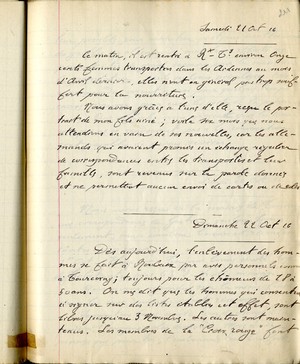 Samedi 21 Oct 16
Ce matin, il est rentré à Rx-Tg environ onze
cents femmes transportées dans les Ardennes au mois
d'Avril dernier, elles n'ont en général pas trop souf-
fert pour la nourriture.
Nous avons grâce à l'une d'elle, reçu le por-
trait de mon fils aîné; voilà mois que nous
attendions en vain de ses nouvelles, car les alle-
mands qui avaient promis un échange régulier
de correspondances entre les transportés et leur
famille, sont revenus sur la parole donnée
et ne permettent aucun envoi de cartes ou
Dimanche 22 Oct 16
Dès aujourd'hui, l'enlèvement des hom-
mes se fait à Roubaix par avis personnels comme
à Tourcoing; toujours pour les chômeurs de 17 à
50 ans. On me dit que les hommes qui consentent
à signer sur des listes établies à cet effet sont
libres jusqu'au 3 Novembre. Les autres sont
Les membres de la "Croix rouge" font